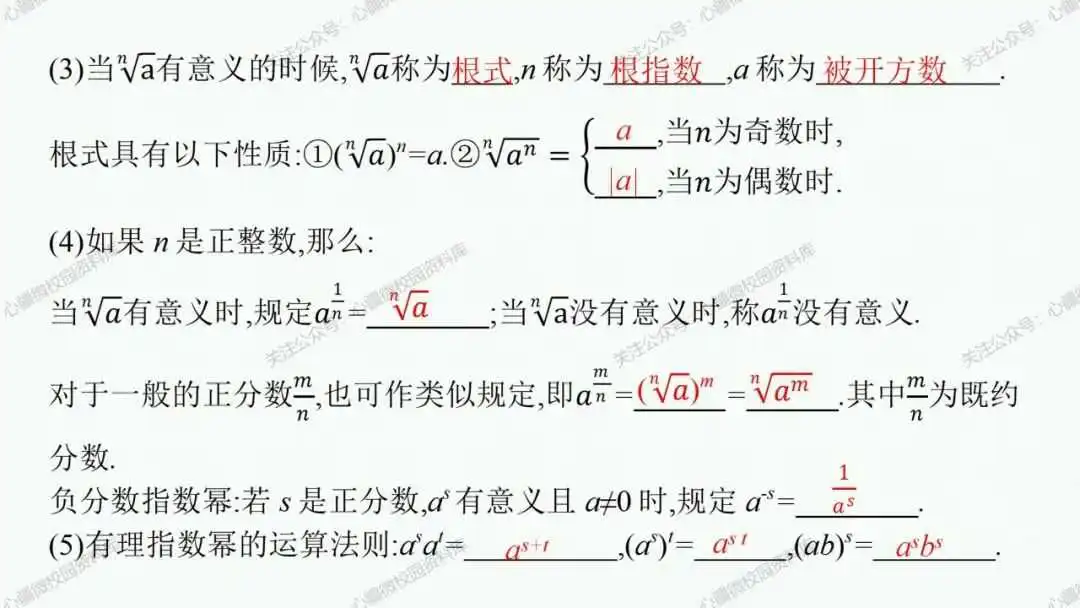 (3)当ⁿ√a有意义的时候,ⁿ√a称为根式,n称为根指数,a称为被开方数.
根式具有以下性质:①(ⁿ√a)ⁿ=a.②ⁿ√aⁿ={a,当n为奇数时,
|a|,当n为偶数时.
(4)如果n是正整数,那么:
当ⁿ√a有意义时,规定a^(1/n)=ⁿ√a;当ⁿ√a没有意义时,称a^(1/n)没有意义.
对于一般的正分数m/n,也可作类似规定,即a^(m/n)=(ⁿ√a)^m=ⁿ√a^m.其中m/n为既约
分数.
负分数指数幂:若s是正分数,a^s有意义且a≠0时,规定a^-s=1/a^s.
(5)有理指数幂的运算法则:a^s a^t=a^(s+t),(a^s)^t=a^(s t),(ab)^s=a^s b^s.